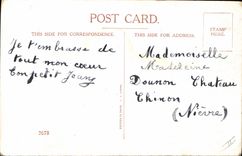 POST CARD.
THIS SIDE FOR CORRESPONDENCE
THE ADDRESS TO BE WRITTEN HERE
Je t'embrasse de
tout mon cœur
Ton petit Jean
Mademoiselle
Madeleine
Dounon Chateau
Chinon
(Nièvre)
2678